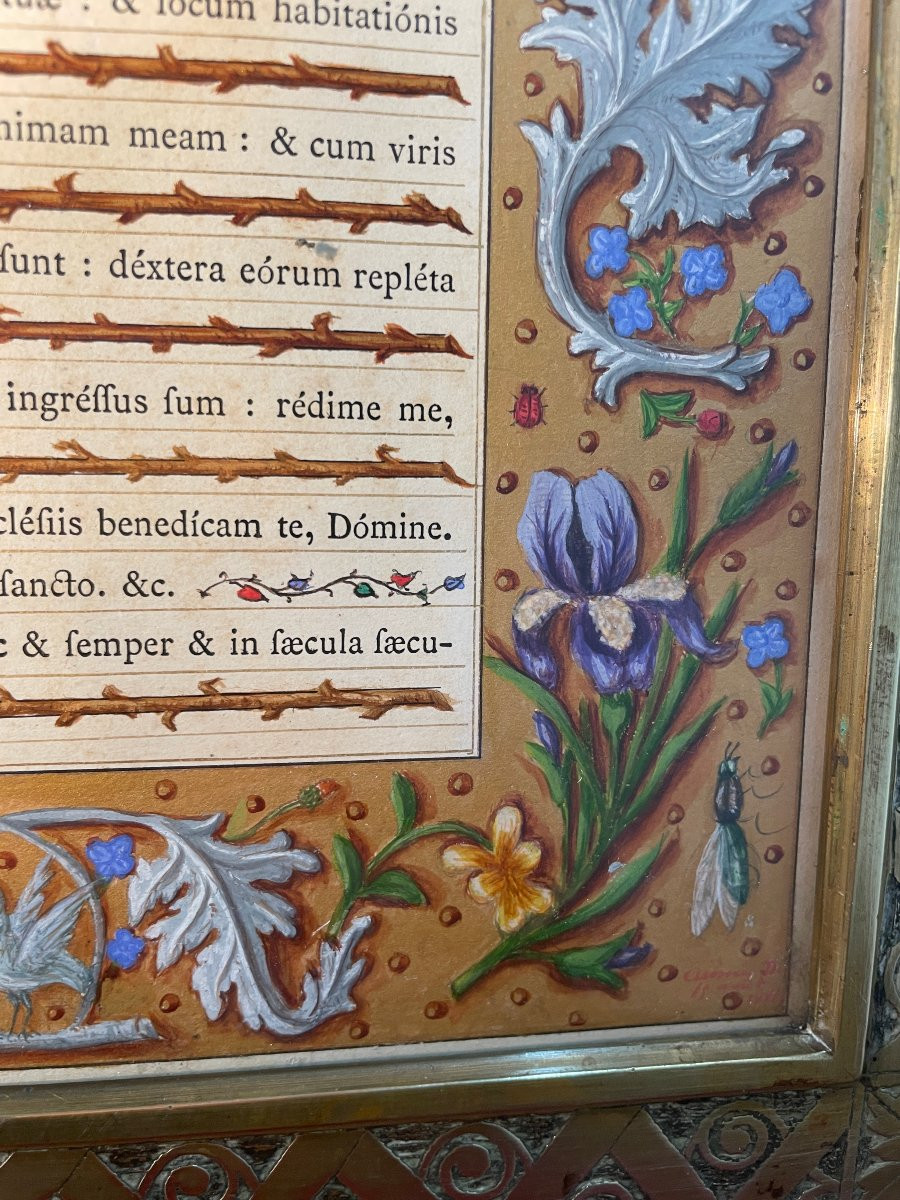 : & locum habitatiónis
nimam meam : & cum viris
ſunt : déxtera eórum repléta
ingréſſus ſum : rédime me,
cléſiis benedícam te, Dómine.
ſancto. &c.
& ſemper & in ſæcula ſæcu-